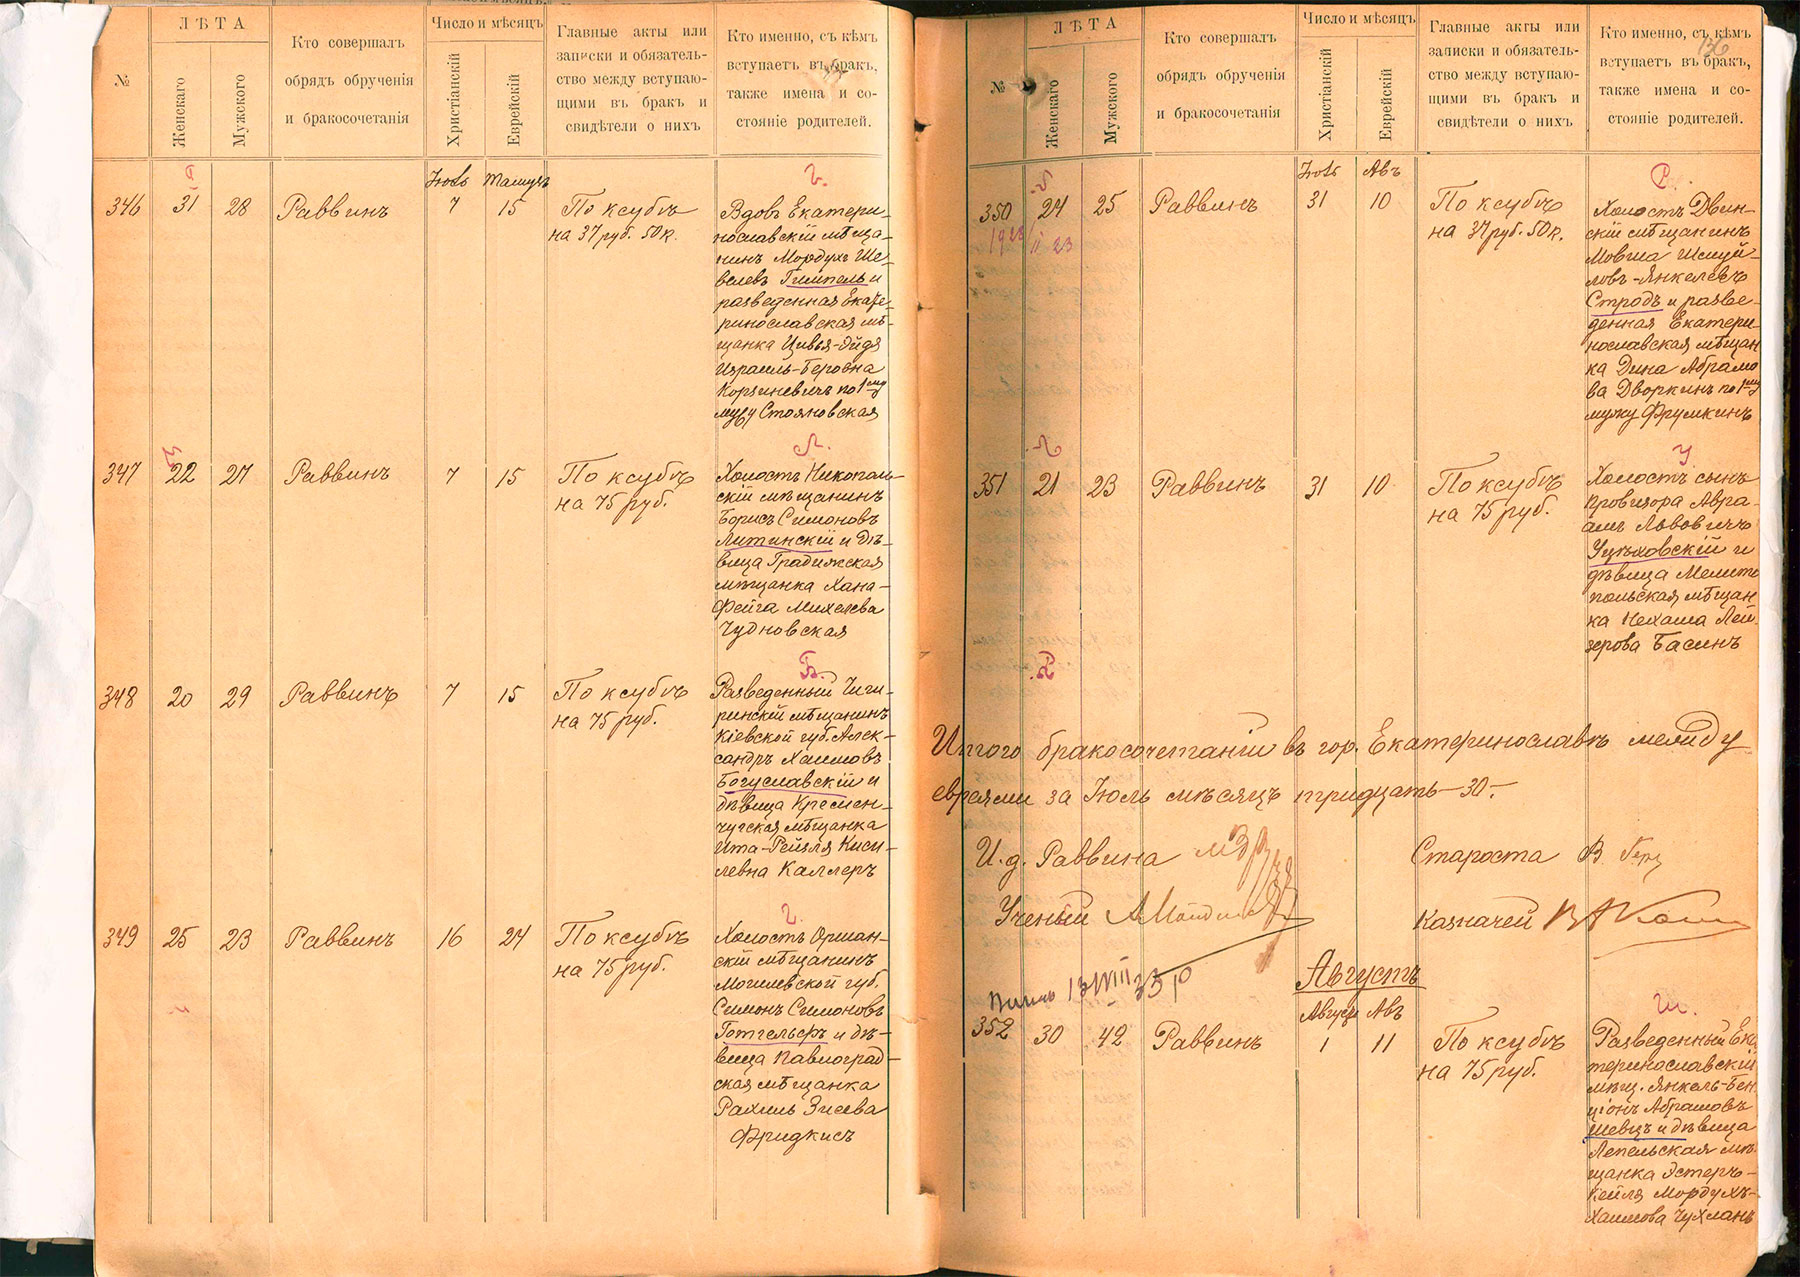 ЛѢТА
Число и мѣсяцъ
№
Женскаго
Мужского
Кто совершалъ
обрядъ обрученія
и бракосочетанія
Христіанскій
Еврейскій
Главные акты или
записки и обязатель-
ство между вступаю-
щими въ бракъ и
свидѣтели о нихъ
Кто именно, съ кѣмъ
вступаетъ въ бракъ,
также имена и со-
стояніе родителей.
Іюль
346 31 28 Раввинъ 7 15
По ксубѣ
на 37 руб. 50 к.
Г.
Вдовъ Екатери-
нославскій мѣща-
нинъ Мордухъ Ше-
велевъ Гимпель и
разведенная Екате-
ринославская мѣ-
щанка Цивья-Эйдя
Израиль-Беровна
Корзиневичъ по 1му
мужу Стояновская
347 22 27 Раввинъ 7 15
По ксубѣ
на 75 руб.
Л.
Холостъ Никополь-
скій мѣщанинъ
Борисъ Симоновъ
Литинскій и дѣ-
вица Градижская
мѣщанка Хана-
Фейга Михелева
Чудновская
348 20 29 Раввинъ 7 15
По ксубѣ
на 75 руб.
Б.
Разведенный Чиги-
ринскій мѣщанинъ
Кіевской губ. Алек-
сандръ Хаимовъ
Богуславскій и
дѣвица Кремен-
чугская мѣщанка
Ита-Рейзля Киси-
левна Каллеръ
349 25 23 Раввинъ 16 24
По ксубѣ
на 75 руб.
Г.
Холостъ Оршан-
скій мѣщанинъ
Могилевской губ.
Симонъ Симоновъ
Готгельфъ и дѣ-
вица Павлоград-
ская мѣщанка
Рахиль Зисева
Фридкисъ
136
ЛѢТА
Число и мѣсяцъ
№
Женскаго
Мужского
Кто совершалъ
обрядъ обрученія
и бракосочетанія
Христіанскій
Еврейскій
Главные акты или
записки и обязатель-
ство между вступаю-
щими въ бракъ и
свидѣтели о нихъ
Кто именно, съ кѣмъ
вступаетъ въ бракъ,
также имена и со-
стояніе родителей.
Іюль Авъ
350 24 25 Раввинъ 31 10
По ксубѣ
на 37 руб. 50 к.
Холостъ Двин-
скій мѣщанинъ
Мовша Шмуй-
ловъ-Янкелевъ
Стродъ и разве-
денная Екатери-
нославская мѣщан
ка Дина Абрамо
ва Дворкинъ по 1му
мужу Фрумкинъ
351 21 23 Раввинъ 31 10
По ксубѣ
на 75 руб.
У.
Холостъ сынъ
провизора Авра-
амъ Львовичъ
Уцѣховскій и
дѣвица Мелито
польская мѣщан
ка Нехама Лей
зерова Басинъ
Итого бракосочетаній въ гор. Екатеринославѣ между
евреями за Іюль мѣсяцъ тридцать -30-
И. д. Раввина
Староста В. Герц
Ученый
Казначей
Августъ
Августъ Авъ
352 30 42 Раввинъ 1 11
По ксубѣ
на 75 руб.
Ш.
Разведенный Ека
теринославскій
мѣщ. Янкель-Бен
ціонъ Абрамовъ
Шевцъ и дѣвица
Лепельская мѣ-
щанка Эстеръ-
Кейля Мордухъ-
Хаимова Чухманъ